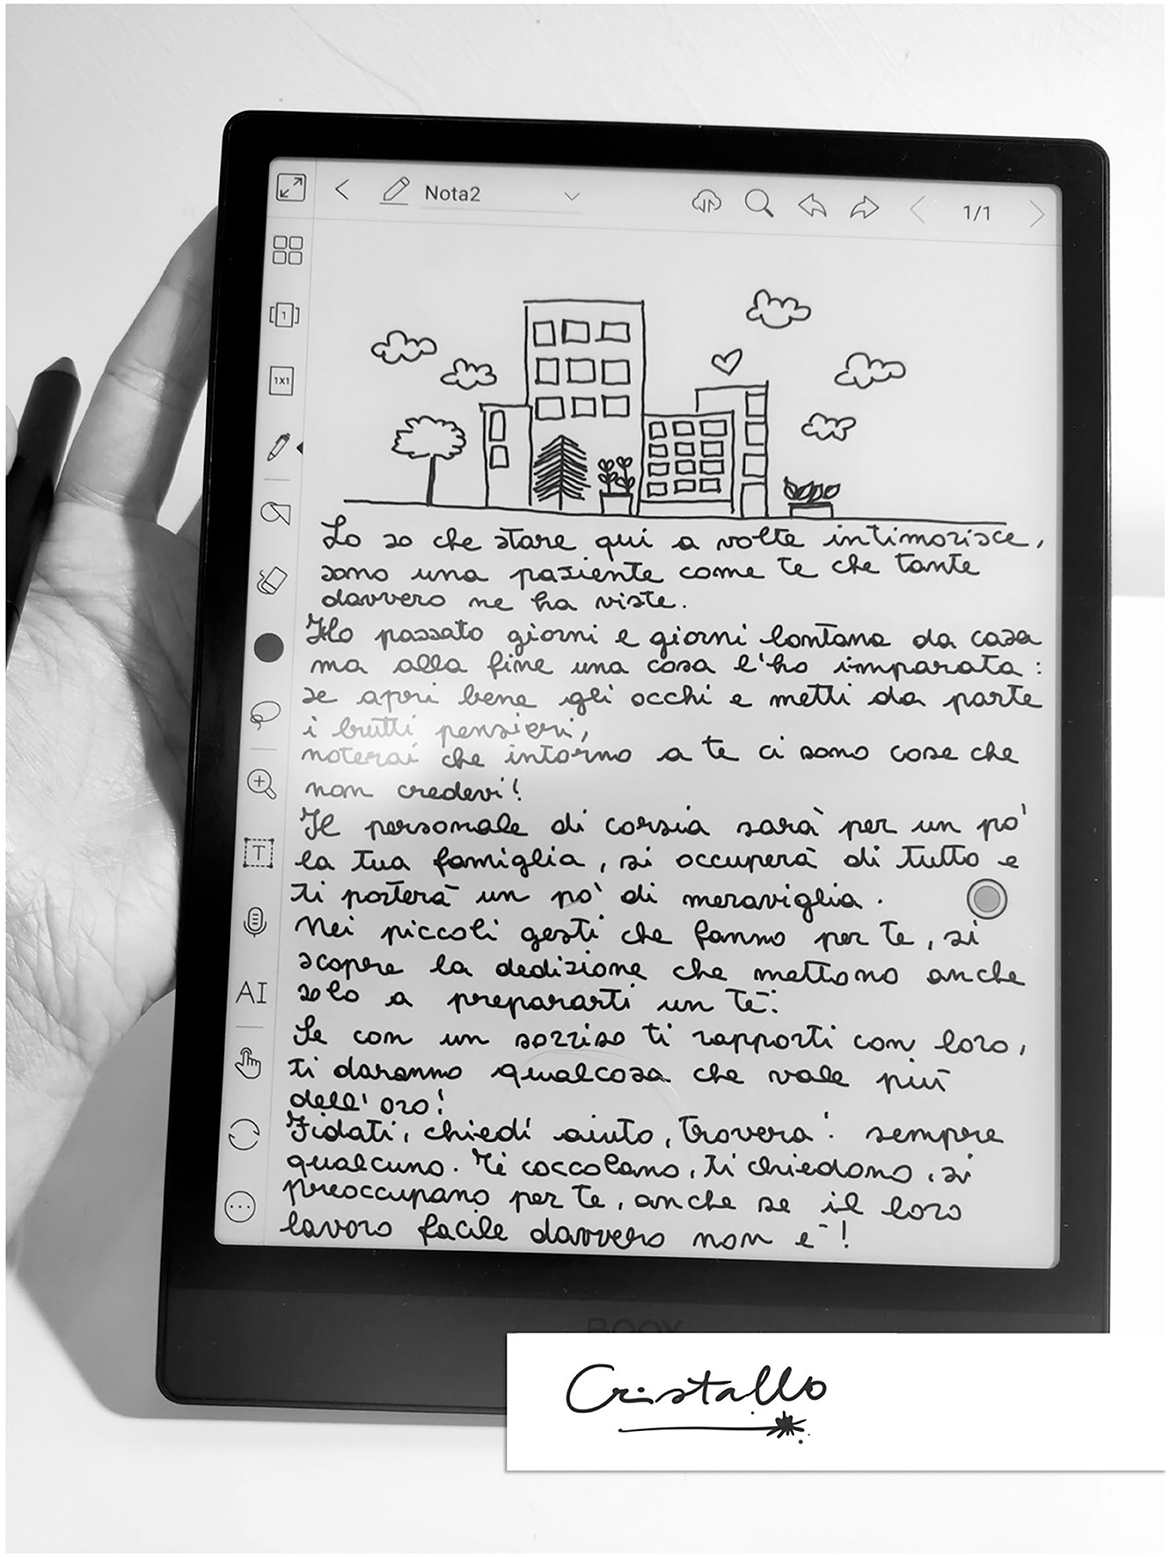 Nota2
1/1
1
1X1
T
AI
Lo so che stare qui a volte intimorisce,
sono una paziente come te che tante
davvero ne ha viste.
Ho passato giorni e giorni lontana da casa
ma alla fine una cosa l'ho imparata:
se apri bene gli occhi e metti da parte
i brutti pensieri,
noterai che intorno a te ci sono cose che
non credevi!
Il personale di corsia sarà per un po'
la tua famiglia, si occuperà di tutto e
ti porterà un po' di meraviglia.
Nei piccoli gesti che fanno per te, si
scopre la dedizione che mettono anche
solo a prepararti un tè.
Se con un sorriso ti rapporti con loro,
ti daranno qualcosa che vale più
dell'oro!
Fidati, chiedi aiuto, troverai sempre
qualcuno. Ti coccolano, ti chiedono, si
preoccupano per te, anche se il loro
lavoro facile davvero non è!
BOOX
Cristallo